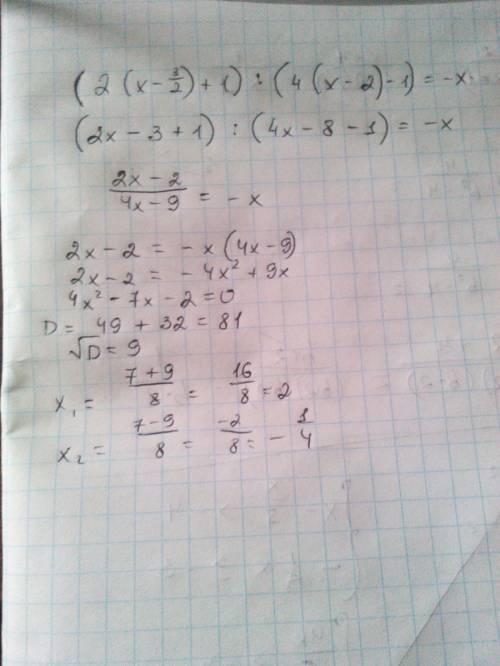 (2(x-3/2)+1):(4(x-2)-1)=-x
(2x-3+1):(4x-8-1)=-x
(2x-2)/(4x-9)=-x
2x-2=-x(4x-9)
2x-2=-4x²+9x
4x²-7x-2=0
D=49+32=81
√D=9
x₁=(7+9)/8=16/8=2
x₂=(7-9)/8=-2/8=-1/4